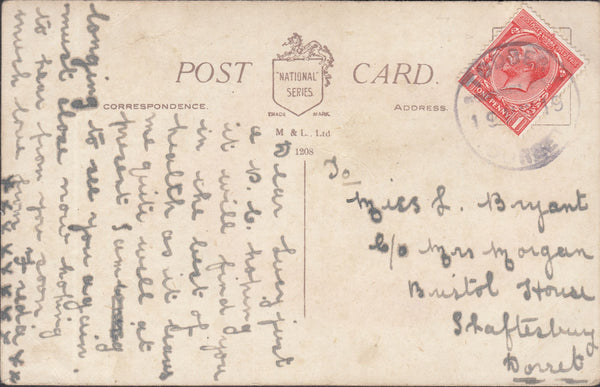 POST CARD.
"NATIONAL"
SERIES.
TRADE MARK.
CORRESPONDENCE.
ADDRESS.
M & L., Ltd
1208
Dear Lucy just
a P.C. hoping
it will find you
in the best of
health as it leaves
me quite well at
present I am
longing to see you again.
must close now hoping
to hear from you soon
much love from Freda
x x x x x x x x x x
To
Miss L. Bryant
C/o Mrs Morgan
Bristol House
Shaftesbury
Dorset
ONE PENNY
1
19
19